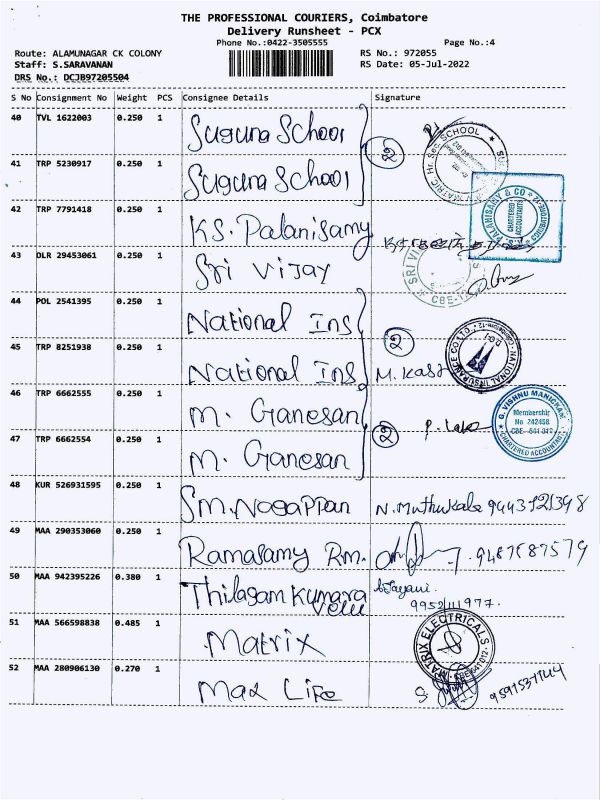 THE PROFESSIONAL COURIERS, Coimbatore
Delivery Runsheet - PCX
Phone No.:0422-3505555 Page No.:4
Route: ALAMUNAGAR CK COLONY RS No.: 972055
Staff: S.SARAVANAN RS Date: 05-Jul-2022
DRS No.: DCJB97205504
S No Consignment No Weight PCS Consignee Details Signature
40 TVL 1622003 0.250 1 Suguna School
41 TRP 5230917 0.250 1 Suguna School 2
MATRIC Hr. Sec. SCHOOL
42 TRP 7791418 0.250 1 KS. Palanisamy
PALANISAMY & CO
CHARTERED ACCOUNTANTS
43 DLR 29453061 0.250 1 Sri Vijay
SRI VI
CBE-12
44 POL 2541395 0.250 1 National Ins
45 TRP 8251938 0.250 1 National Ins 2 M. Kasi
NATIONAL INSURANCE CO. LTD.
46 TRP 6662555 0.250 1 M. Ganesan
47 TRP 6662554 0.250 1 M. Ganesan 2
G. VISHNU MANICKAM
Membership
No 242458
CBE - 641 012
CHARTERED ACCOUNTANT
48 KUR 526931595 0.250 1 SM. Nagappan
49 MAA 290353060 0.250 1 Ramasamy Rm. 9487587579
50 MAA 942395226 0.380 1 Thilagam Kumara
velu
51 MAA 566598838 0.485 1 Matrix
MATRIX ELECTRICALS
CBE-641012
52 MAA 280906130 0.270 1 Max Life